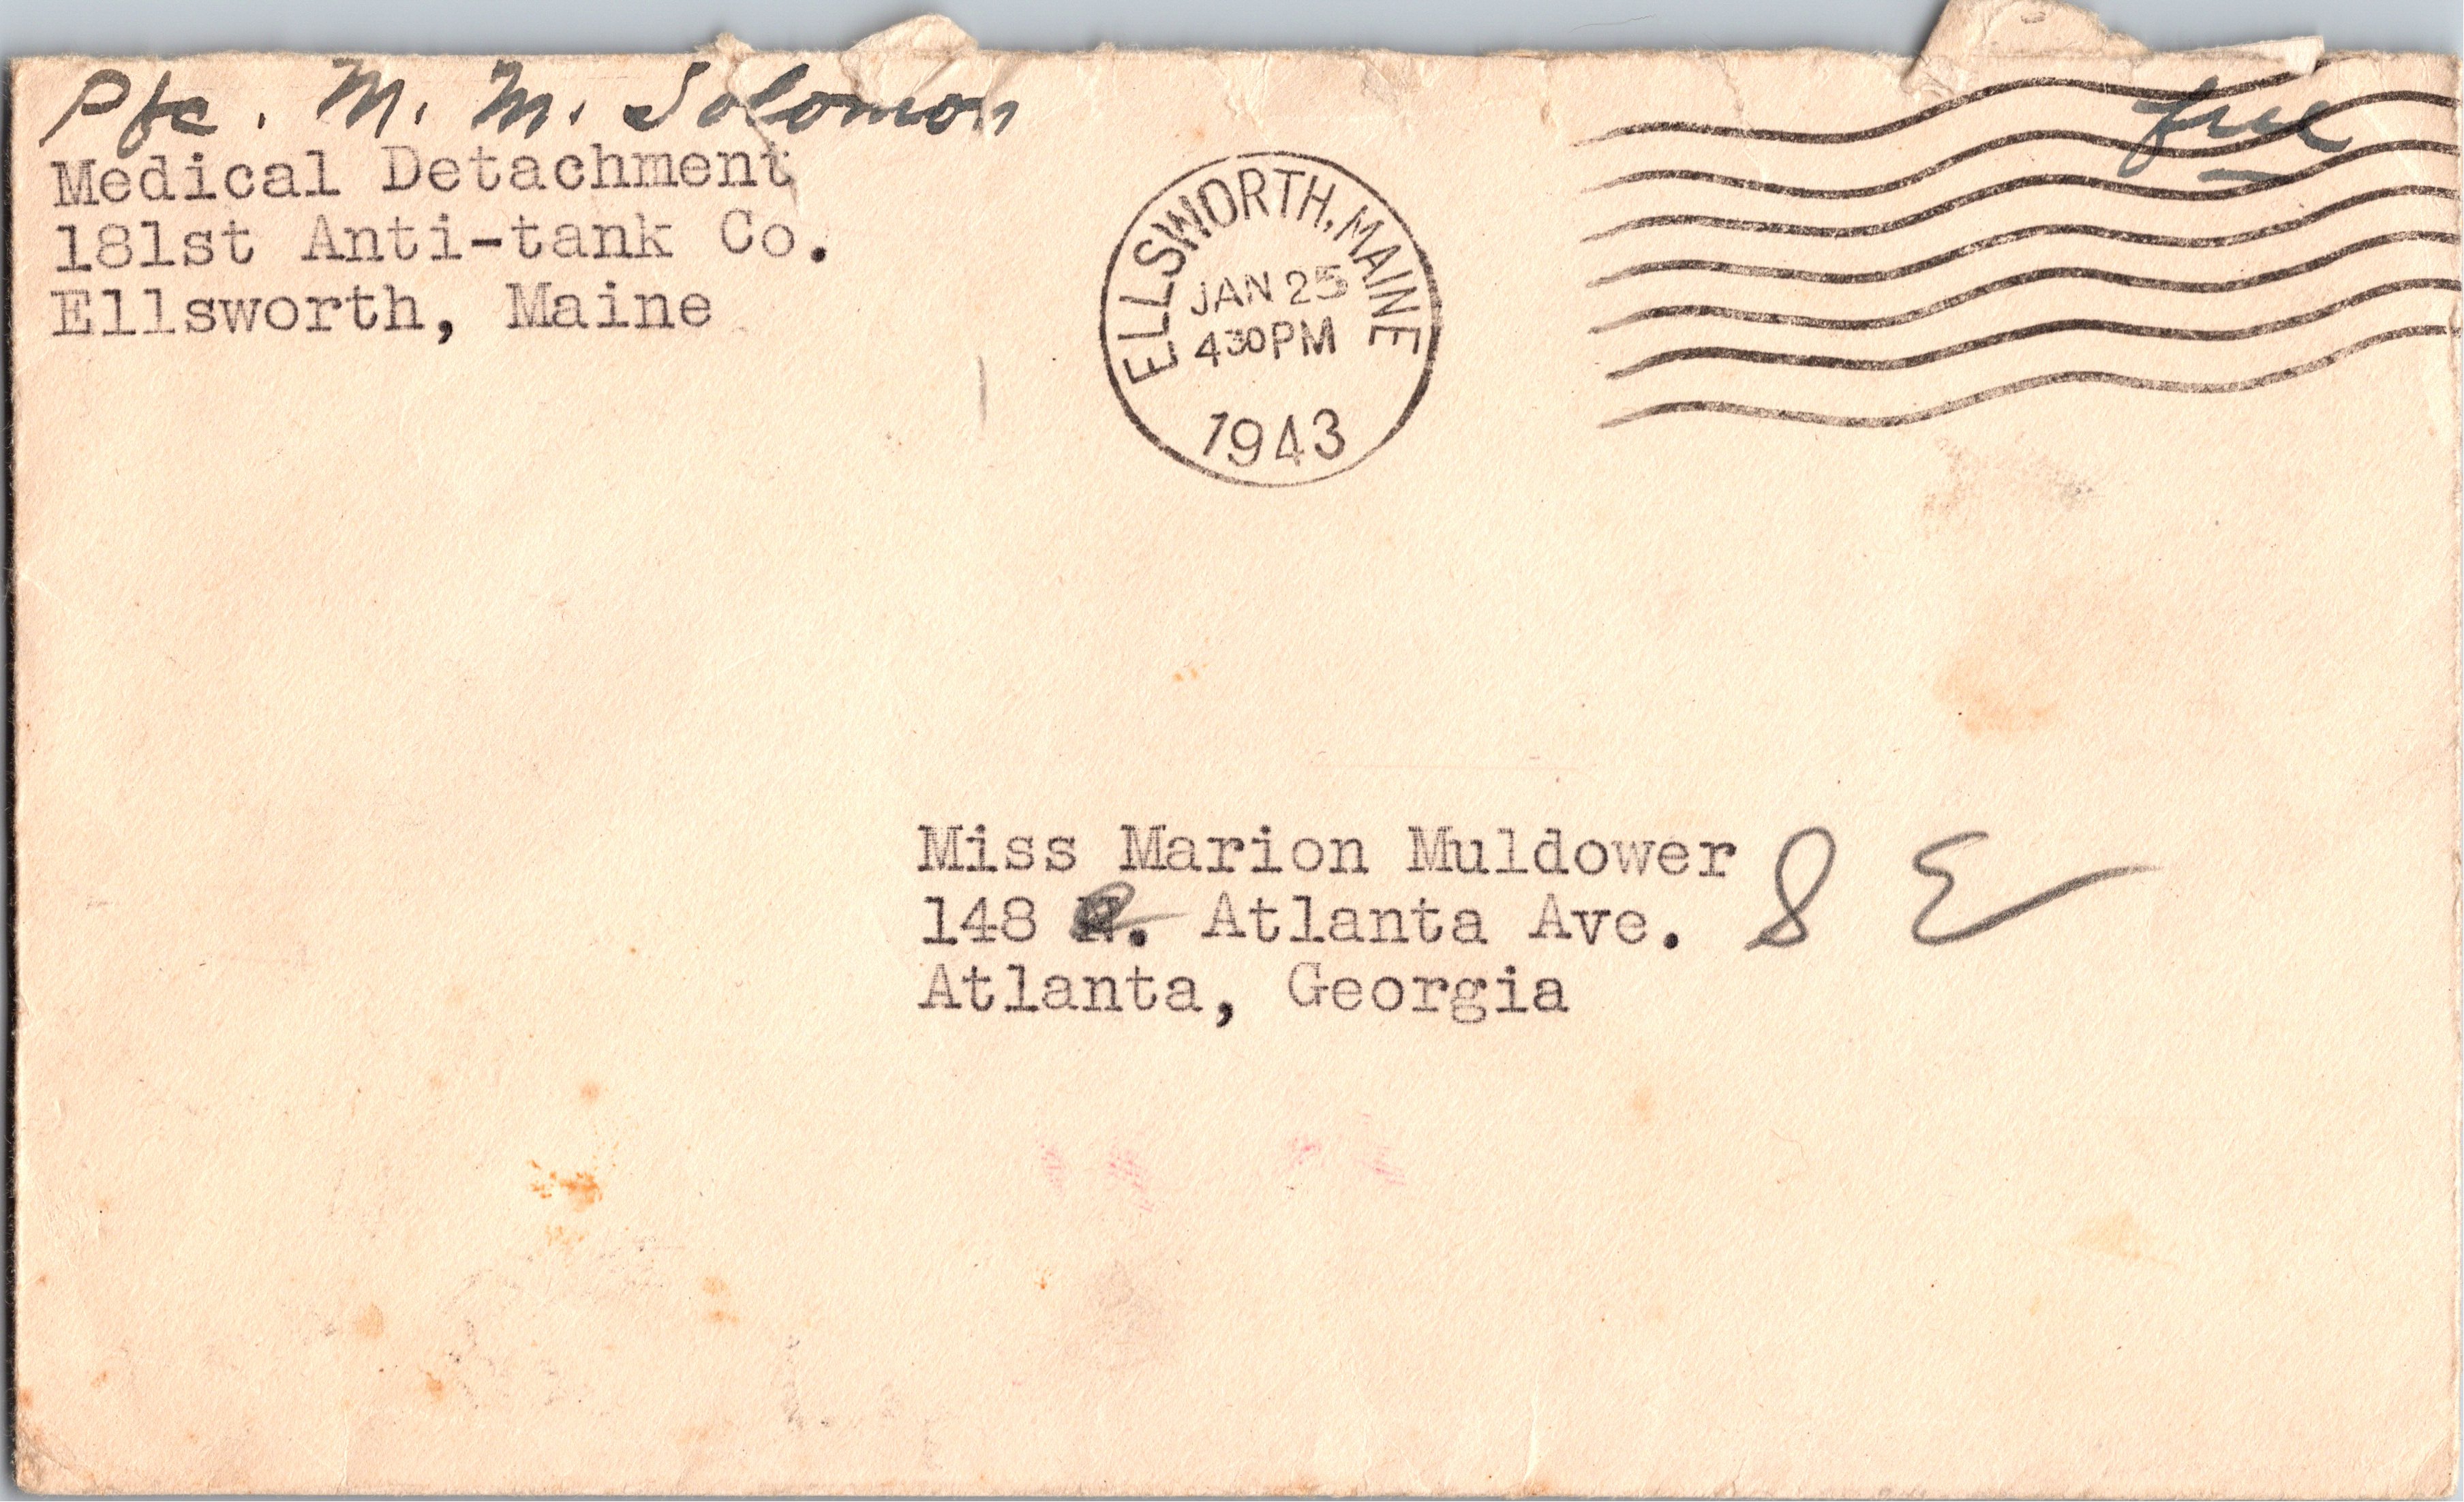 Pfc. M. M. Solomon
Medical Detachment
181st Anti-tank Co.
Ellsworth, Maine
ELLSWORTH, MAINE
JAN 25
430PM
1943
free
Miss Marion Muldower
148 N. Atlanta Ave. S E
Atlanta, Georgia